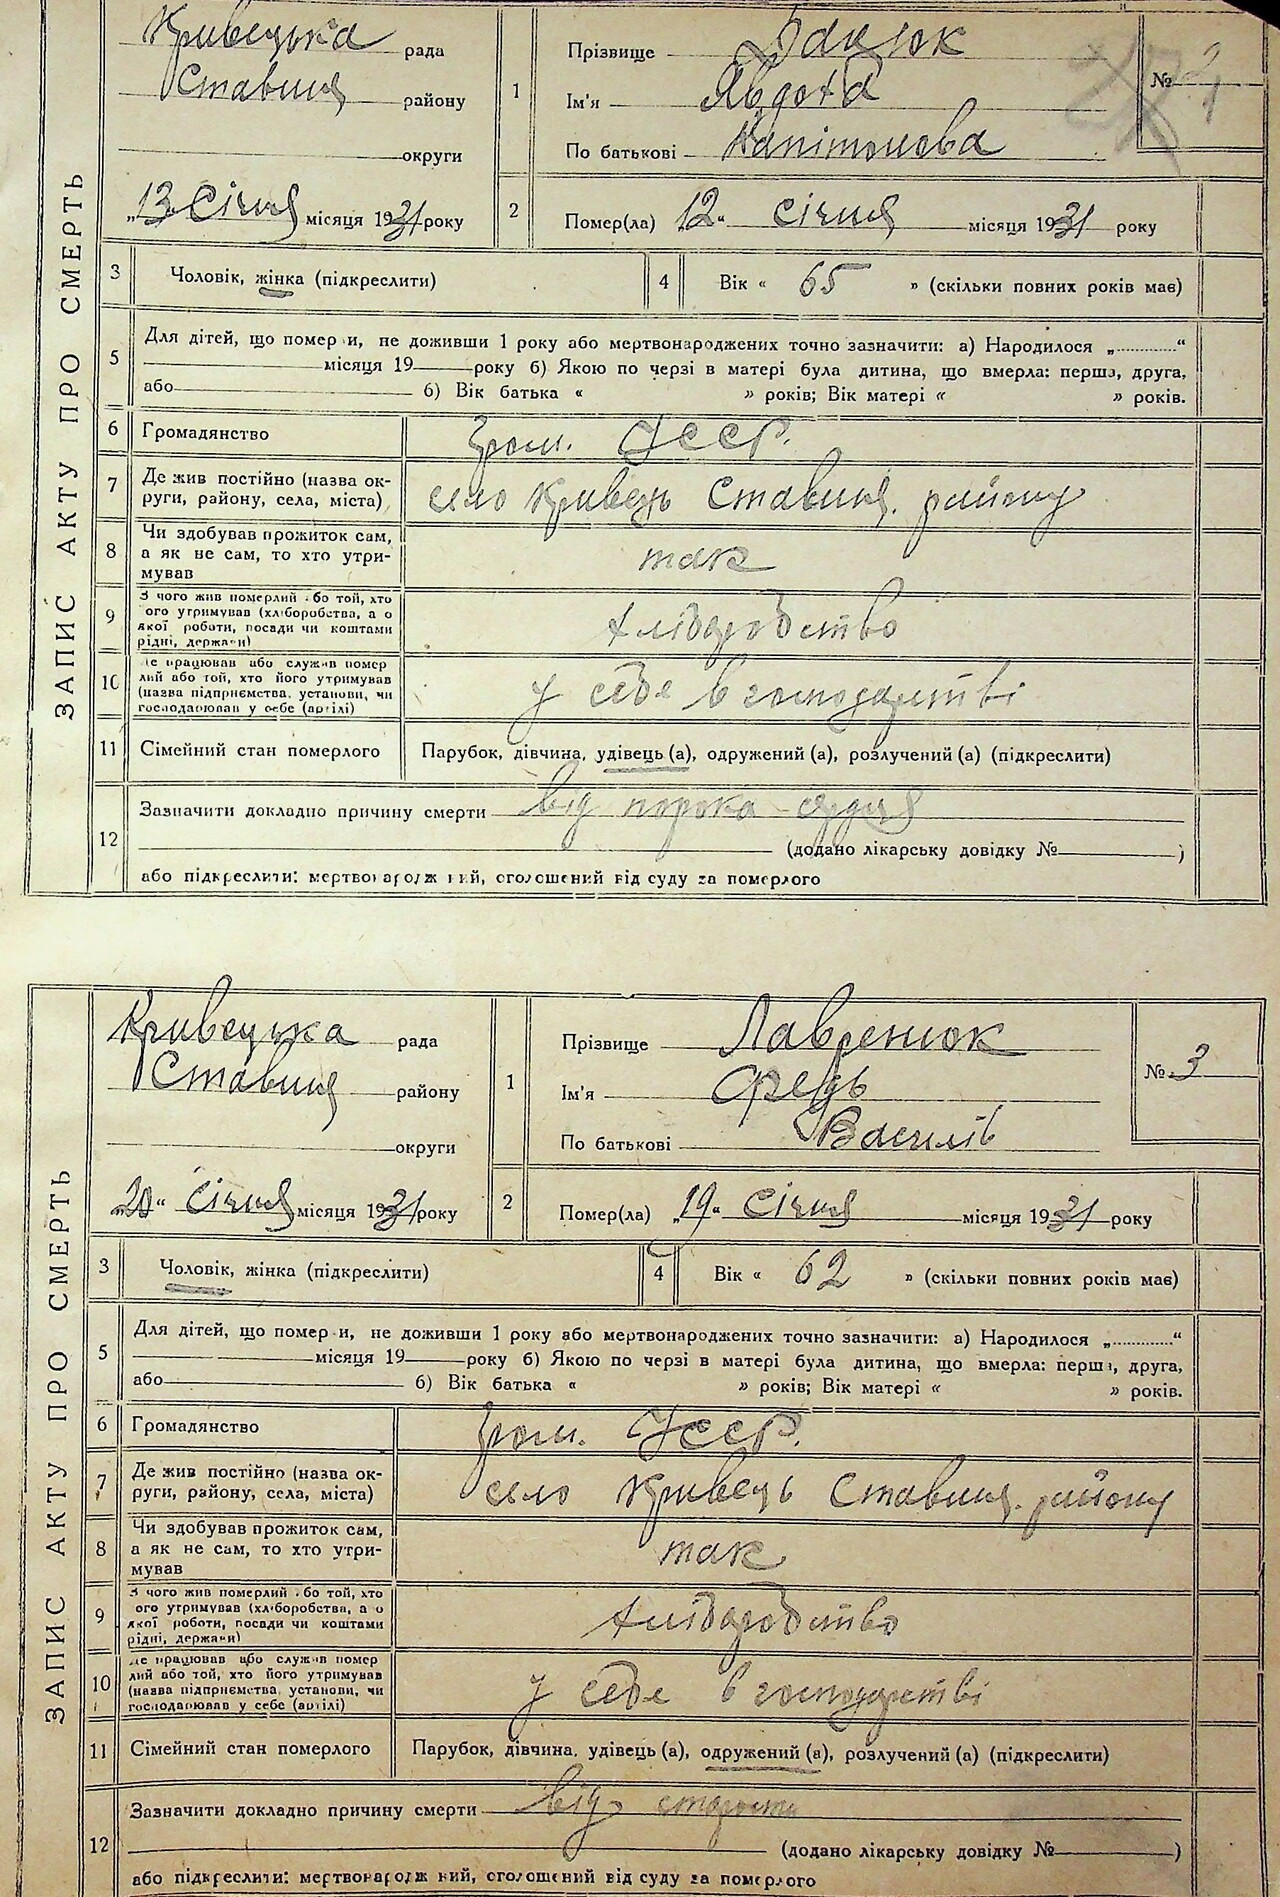 ЗАПИС АКТУ ПРО СМЕРТЬ
Кривецька рада
Ставищ району
округи
„13 Січня місяця 1931 року
1
Прізвище
Ім'я Явдоха
По батькові Капітонова
№ 2
2
Помер(ла) 12 „ січня місяця 1931 року
3 Чоловік, жінка (підкреслити)
4 Вік « 65 » (скільки повних років має)
5 Для дітей, що помер и, не доживши 1 року або мертвонароджених точно зазначити: а) Народилося „............“
місяця 19 року б) Якою по черзі в матері була дитина, що вмерла: перша, друга,
або б) Вік батька « » років; Вік матері « » років.
6 Громадянство гром. УССР.
7 Де жив постійно (назва ок-
руги, району, села, міста) село Кривець Ставищ. району
8 Чи здобував прожиток сам,
а як не сам, то хто утри-
мував так
9 З чого жив померлий або той, хто
ого утримував (хліборобства, а о
якої роботи, посади чи коштами
рідні, держави) хліборобство
10 Де працював або служив помер
лий або той, хто його утримував
(назва підприємства, установи, чи
господарював у себе (артілі) у себе в господарстві
11 Сімейний стан померлого Парубок, дівчина, удівець (а), одружений (а), розлучений (а) (підкреслити)
12 Зазначити докладно причину смерти від порока сердця
(додано лікарську довідку № )
або підкреслити: мертвонароджений, оголошений від суду за померлого
ЗАПИС АКТУ ПРО СМЕРТЬ
Кривецька рада
Ставищ району
округи
„20“ Січня місяця 1931 року
1
Прізвище Лавренюк
Ім'я Федь
По батькові Василів
№ 3
2
Помер(ла) „19“ Січня місяця 1931 року
3 Чоловік, жінка (підкреслити)
4 Вік « 62 » (скільки повних років має)
5 Для дітей, що помер и, не доживши 1 року або мертвонароджених точно зазначити: а) Народилося „............“
місяця 19 року б) Якою по черзі в матері була дитина, що вмерла: перша, друга,
або б) Вік батька « » років; Вік матері « » років.
6 Громадянство гром. УССР.
7 Де жив постійно (назва ок-
руги, району, села, міста) село Кривець Ставищ. району
8 Чи здобував прожиток сам,
а як не сам, то хто утри-
мував так
9 З чого жив померлий або той, хто
ого утримував (хліборобства, а о
якої роботи, посади чи коштами
рідні, держави) хліборобство
10 Де працював або служив помер
лий або той, хто його утримував
(назва підприємства, установи, чи
господарював у себе (артілі) у себе в господарстві
11 Сімейний стан померлого Парубок, дівчина, удівець (а), одружений (а), розлучений (а) (підкреслити)
12 Зазначити докладно причину смерти від старости
(додано лікарську довідку № )
або підкреслити: мертвонароджений, оголошений від суду за померлого